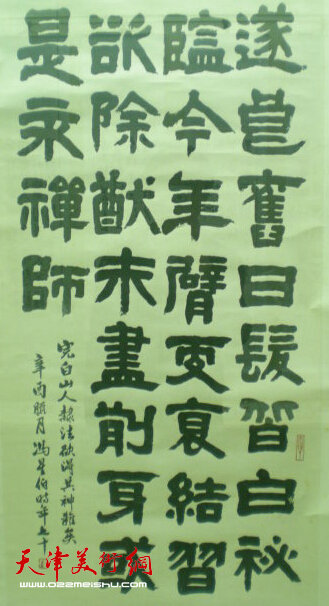 遂良舊日髮皆白祕
監今年臂更衰結習
欲除猷未盡前身或
是永禪師
完白山人隸法欲得其神難矣
辛酉臘月馮星伯時年七十
天津美術網
www.022meishu.com